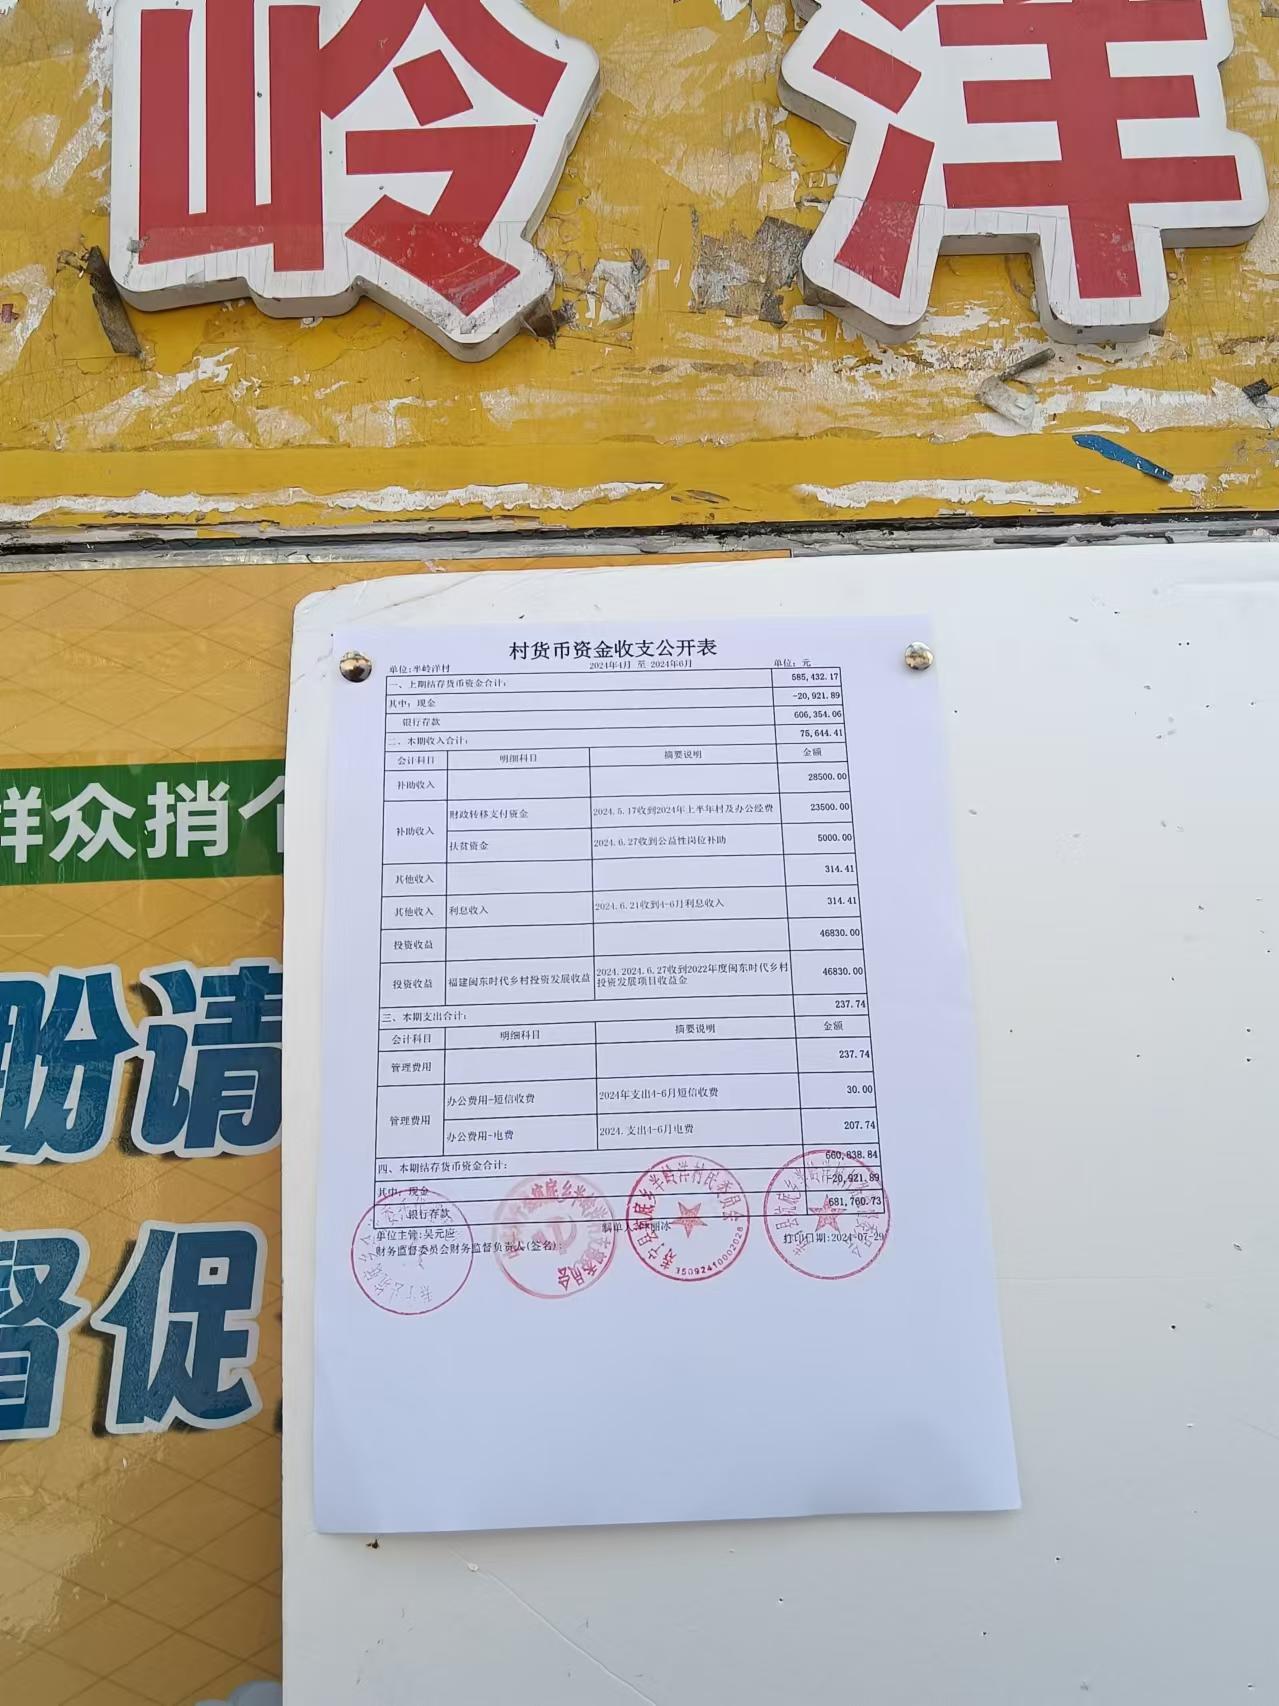 岭洋
群众捎
盼请
督促
村货币资金收支公开表
单位:半岭洋村 2024年4月 至 2024年6月 单位: 元
一、上期结存货币资金合计: 585,432.17
其中: 现金 -20,921.89
银行存款 606,354.06
二、本期收入合计: 75,644.41
会计科目 明细科目 摘要说明 金额
补助收入 28500.00
补助收入 财政转移支付资金 2024.5.17收到2024年上半年村及办公经费 23500.00
扶贫资金 2024.6.27收到公益性岗位补助 5000.00
其他收入 314.41
其他收入 利息收入 2024.6.21收到4-6月利息收入 314.41
投资收益 46830.00
投资收益 福建闽东时代乡村投资发展收益 2024.2024.6.27收到2022年度闽东时代乡村投资发展项目收益金 46830.00
三、本期支出合计: 237.74
会计科目 明细科目 摘要说明 金额
管理费用 237.74
管理费用 办公费用-短信收费 2024年支出4-6月短信收费 30.00
办公费用-电费 2024.支出4-6月电费 207.74
四、本期结存货币资金合计: 660,838.84
其中: 现金 -20,921.89
银行存款 681,760.73
单位主管:吴元应 制单人: 丽冰 打印日期:2024-07-29
财务监督委员会财务监督负责人(签名):
底乡半岭洋村民委员会
35092410002028